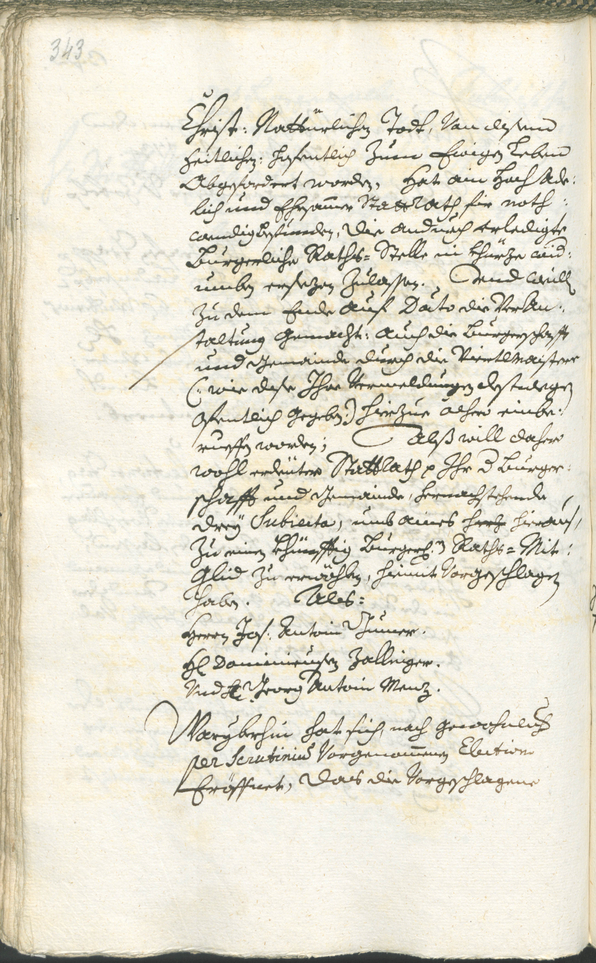 343
Christ: Nattürlichen Todt, Von disem
Zeitlichen: hofentlich Zum Ewigen Leben
Abgefordert worden, hat ain Hoch Ade:
lich und Ehrsamer Stattrath für noth:
wendig befunden, die andurch erledigte
Burgerliche Raths=Stelle in Khürze wid:
umben ersezen Zulassen. Und weill
Zu dem Ende auf Dato die Veran:
staltung gemacht: auch die Burgerschafft
und Gemainde durch die Viertlmaister
(: wie dise Ihre Vermeldungen desswegen
ofentlich gegeben:) hierzue alhero einbe:
rueffen worden; Alss will dahero
wohl erdeüter Stattrath Ihr d Burger:
schafft und Gemainde, hernachstehende
drey Subiecta, umb aines hieraus,
Zu einen khünfftig Burgerl:n Raths=Mit:
Glid Zu erwöhlen, hiemit Vorgeschlagen
haben. Als:
Herrn Jos: Antoni
H: Dominicusen Zallinger.
Und H: Georg Antoni Menz.
Waryberhin hat sich nach gewohnlich
per Scrutinium Vorgenommenen Election
Eröffnet, dass die Vorgeschlagene